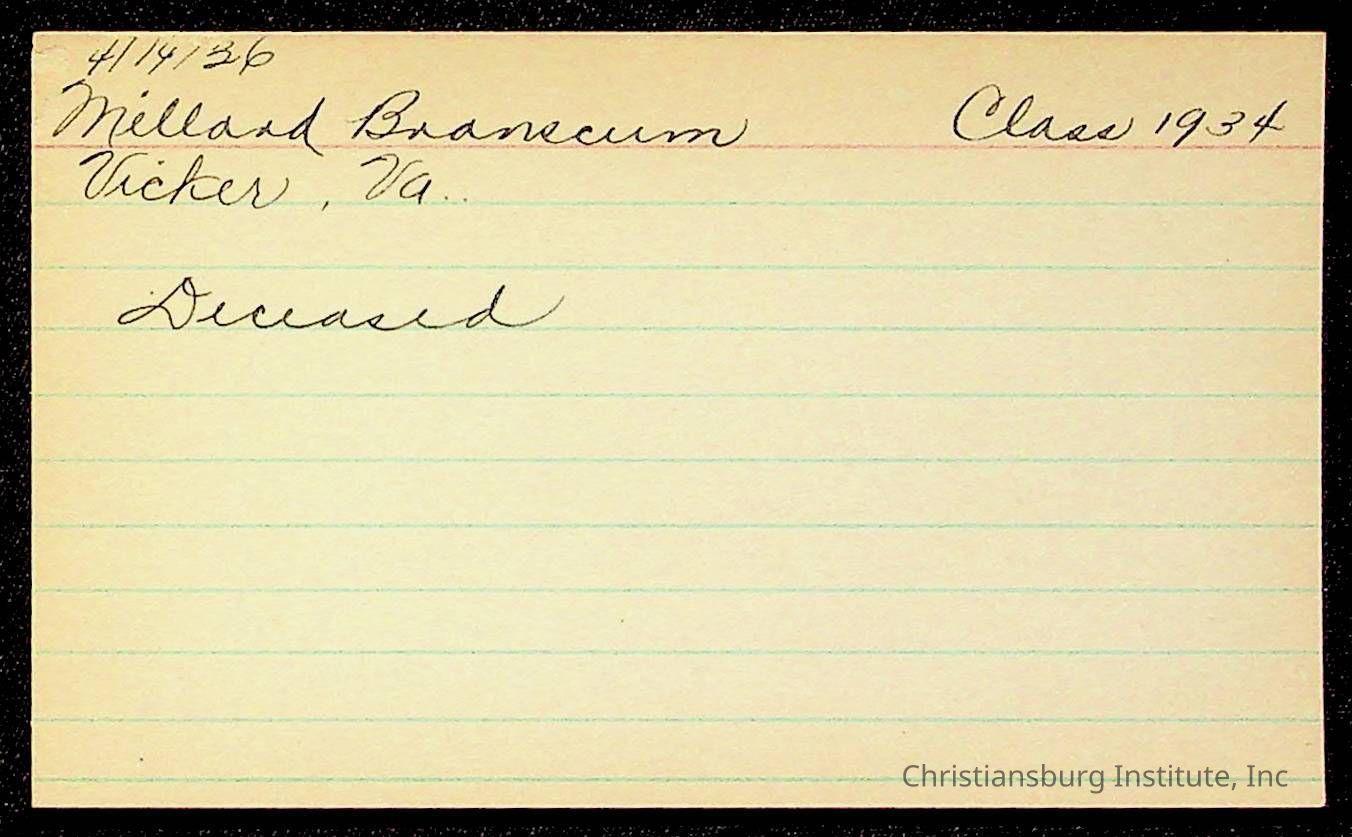 4/14/36
Millard Branscum Class 1934
Vicker, Va.
Deceased
Christiansburg Institute, Inc